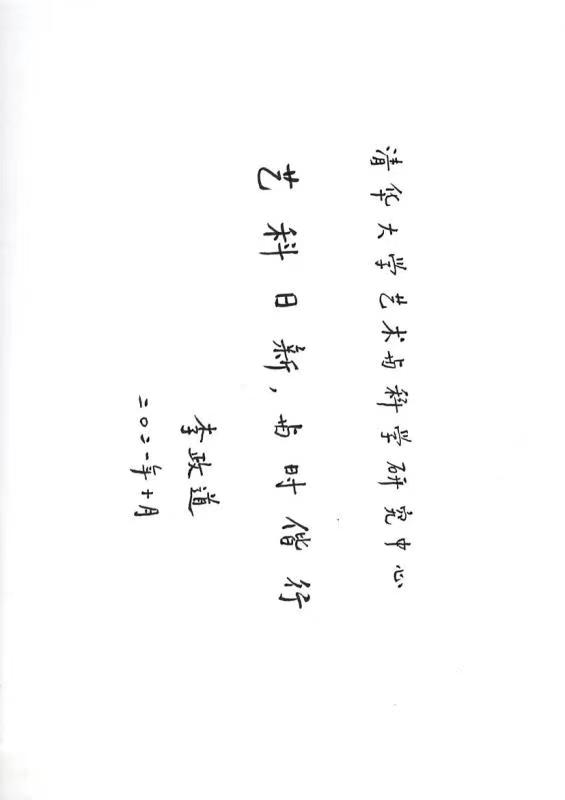 清华大学艺术与科学研究中心
艺科日新，与时偕行
李政道
二〇二一年十月